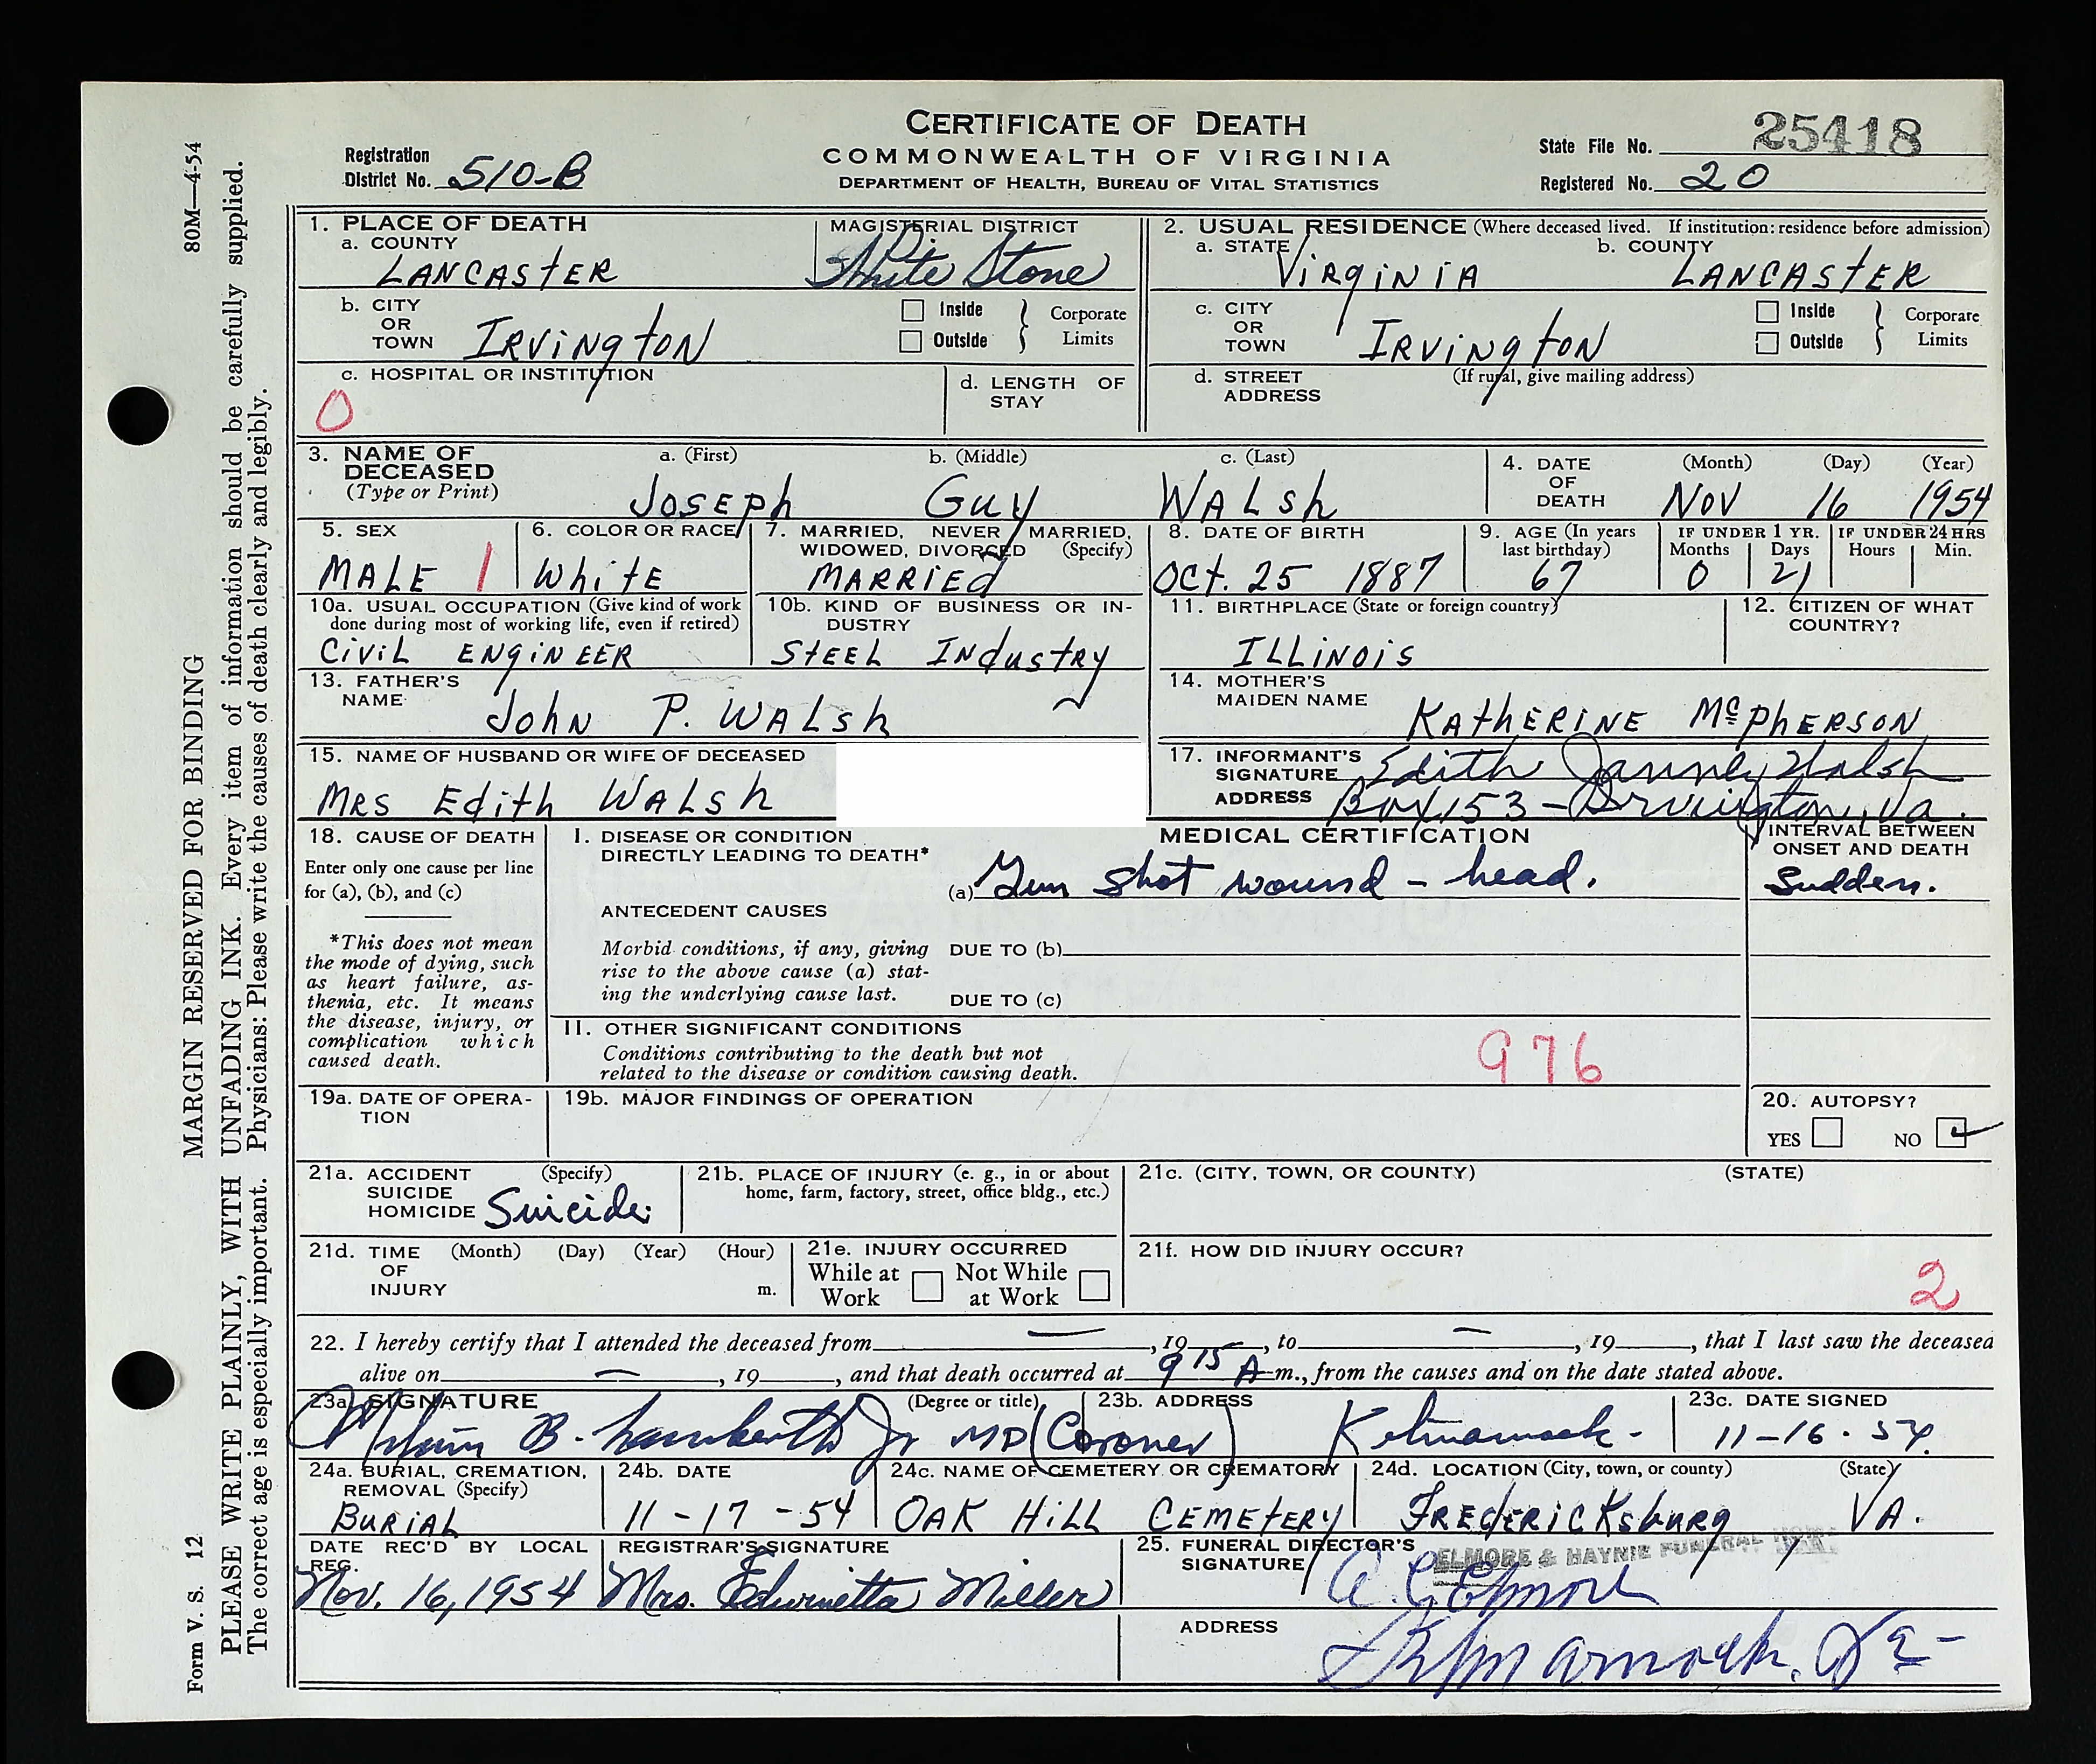 CERTIFICATE OF DEATH
COMMONWEALTH OF VIRGINIA
DEPARTMENT OF HEALTH, BUREAU OF VITAL STATISTICS
Registration District No. 510-B
State File No. 25418
Registered No. 20
80M—4-54
MARGIN RESERVED FOR BINDING
PLEASE WRITE PLAINLY, WITH UNFADING INK. Every item of information should be carefully supplied.
The correct age is especially important. Physicians: Please write the causes of death clearly and legibly.
Form V. S. 12
1. PLACE OF DEATH
a. COUNTY
LANCASTER
MAGISTERIAL DISTRICT
White Stone
2. USUAL RESIDENCE (Where deceased lived. If institution: residence before admission)
a. STATE
VIRGINIA
b. COUNTY
LANCASTER
b. CITY OR TOWN IRVINGTON
Inside
Outside
Corporate Limits
c. CITY OR TOWN IRVINGTON
Inside
Outside
Corporate Limits
c. HOSPITAL OR INSTITUTION
0
d. LENGTH OF STAY
d. STREET ADDRESS (If rural, give mailing address)
3. NAME OF DECEASED (Type or Print)
a. (First) b. (Middle) c. (Last)
JOSEPh GUY WALSh
4. DATE OF DEATH (Month) (Day) (Year)
NOV 16 1954
5. SEX
MALE 1
6. COLOR OR RACE
WhitE
7. MARRIED, NEVER MARRIED, WIDOWED, DIVORCED (Specify)
MARRIEd
8. DATE OF BIRTH
OCT. 25 1887
9. AGE (In years last birthday)
67
IF UNDER 1 YR. Months Days
0 21
IF UNDER 24 HRS Hours Min.
10a. USUAL OCCUPATION (Give kind of work done during most of working life, even if retired)
CiviL ENgiNEER
10b. KIND OF BUSINESS OR INDUSTRY
StEEL INdustRy
11. BIRTHPLACE (State or foreign country)
ILLiNOiS
12. CITIZEN OF WHAT COUNTRY?
13. FATHER'S NAME
JohN P. WALSh
14. MOTHER'S MAIDEN NAME
KAthERINE McPhERSON
15. NAME OF HUSBAND OR WIFE OF DECEASED
MRS Edith WALSh
17. INFORMANT'S SIGNATURE Edith Janney Walsh
ADDRESS Box 153 - Irvington, Va.
18. CAUSE OF DEATH
Enter only one cause per line for (a), (b), and (c)
*This does not mean the mode of dying, such as heart failure, asthenia, etc. It means the disease, injury, or complication which caused death.
MEDICAL CERTIFICATION
I. DISEASE OR CONDITION DIRECTLY LEADING TO DEATH*
(a) Gun shot wound - head.
INTERVAL BETWEEN ONSET AND DEATH
Sudden.
ANTECEDENT CAUSES
Morbid conditions, if any, giving rise to the above cause (a) stating the underlying cause last.
DUE TO (b)
DUE TO (c)
II. OTHER SIGNIFICANT CONDITIONS
Conditions contributing to the death but not related to the disease or condition causing death.
976
19a. DATE OF OPERATION
19b. MAJOR FINDINGS OF OPERATION
20. AUTOPSY?
YES NO
21a. ACCIDENT SUICIDE HOMICIDE (Specify)
Suicide
21b. PLACE OF INJURY (e. g., in or about home, farm, factory, street, office bldg., etc.)
21c. (CITY, TOWN, OR COUNTY) (STATE)
21d. TIME OF INJURY (Month) (Day) (Year) (Hour) m.
21e. INJURY OCCURRED
While at Work Not While at Work
21f. HOW DID INJURY OCCUR?
2
22. I hereby certify that I attended the deceased from — , 19 , to — , 19 , that I last saw the deceased
alive on — , 19 , and that death occurred at 9 15 A m., from the causes and on the date stated above.
23a. SIGNATURE (Degree or title)
B. Lamberth Jr MD (Coroner)
23b. ADDRESS
Kilmarnock -
23c. DATE SIGNED
11-16-54.
24a. BURIAL, CREMATION, REMOVAL (Specify)
BURIAL
24b. DATE
11-17-54
24c. NAME OF CEMETERY OR CREMATORY
OAK HiLL CEMEtERY
24d. LOCATION (City, town, or county) (State)
FREdERiCKsburg VA.
DATE REC'D BY LOCAL REG.
Nov. 16, 1954
REGISTRAR'S SIGNATURE
Mrs. Edwinetta Miller
25. FUNERAL DIRECTOR'S SIGNATURE
ELMORE & HAYNIE FUNERAL HOME
A. C. Elmore
ADDRESS
Kilmarnock, Va-